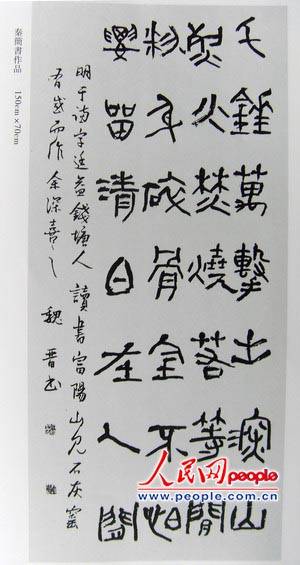 秦簡書作品 150cm×70cm
千錘萬擊出深山
烈火焚燒若等閒
粉身碎骨全不怕
要留清白在人間
明于謙字廷益錢塘人 讀書富陽山見石灰窰
感而作 余深喜之 魏晋书
人民网people
www.people.com.cn